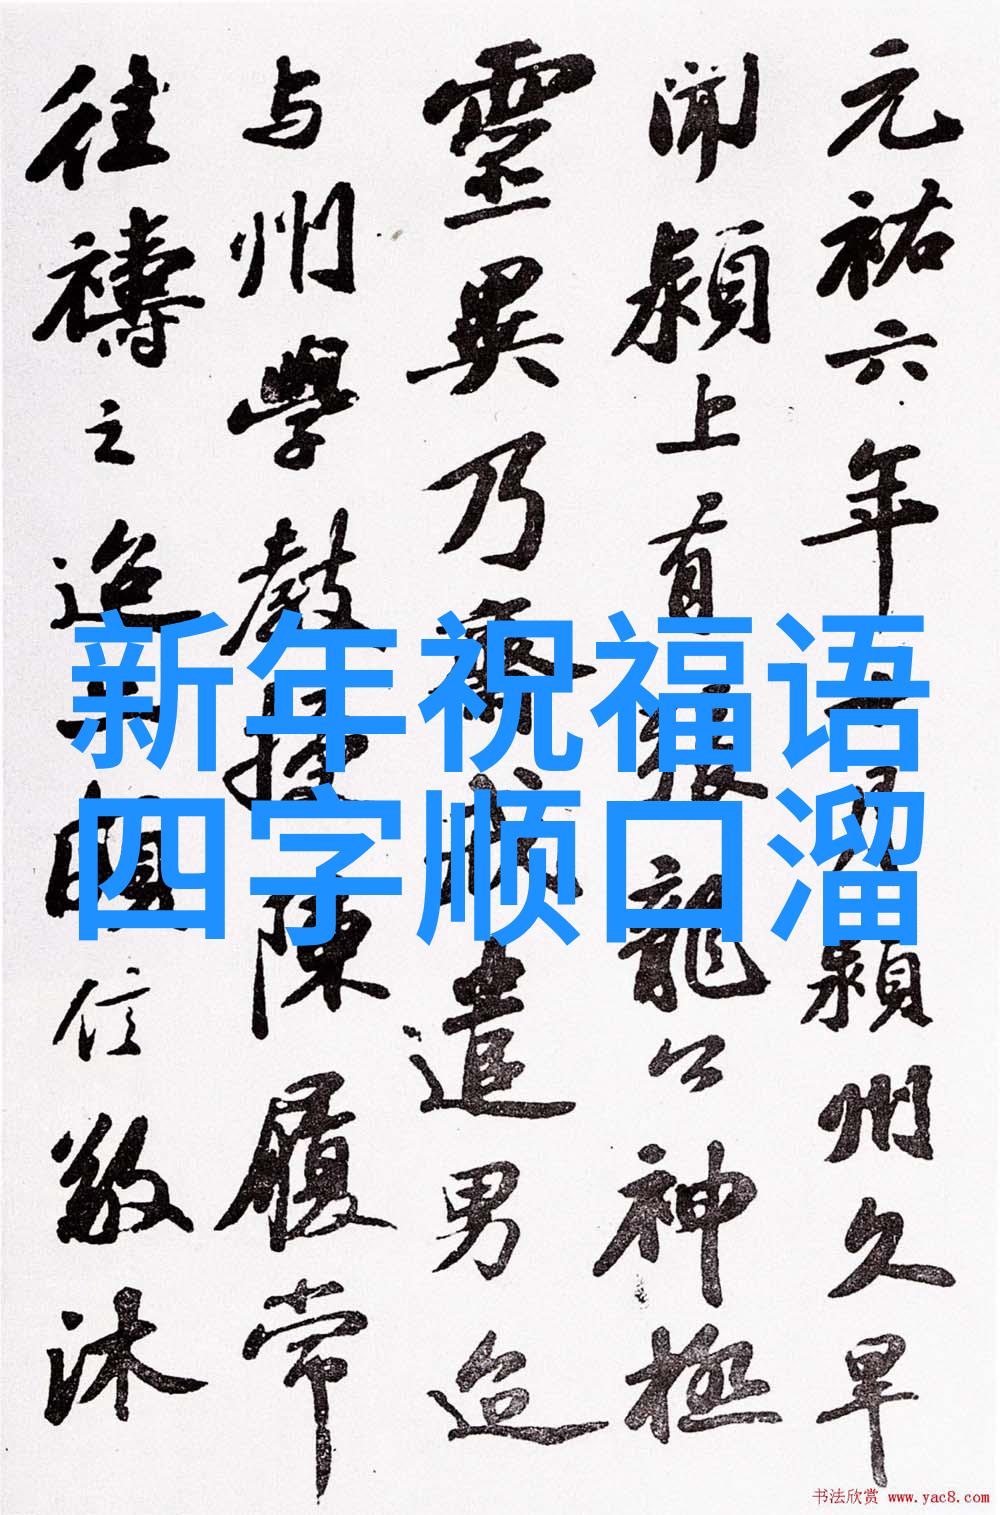 元祐六年潁州久旱
聞潁上有張龍公神極
靈異乃齋戒遣男迨
与州學教授陳履常
往禱之迨亦頗信敬沐
新年祝福语
四字顺口溜
书法欣赏 www.yac8.com